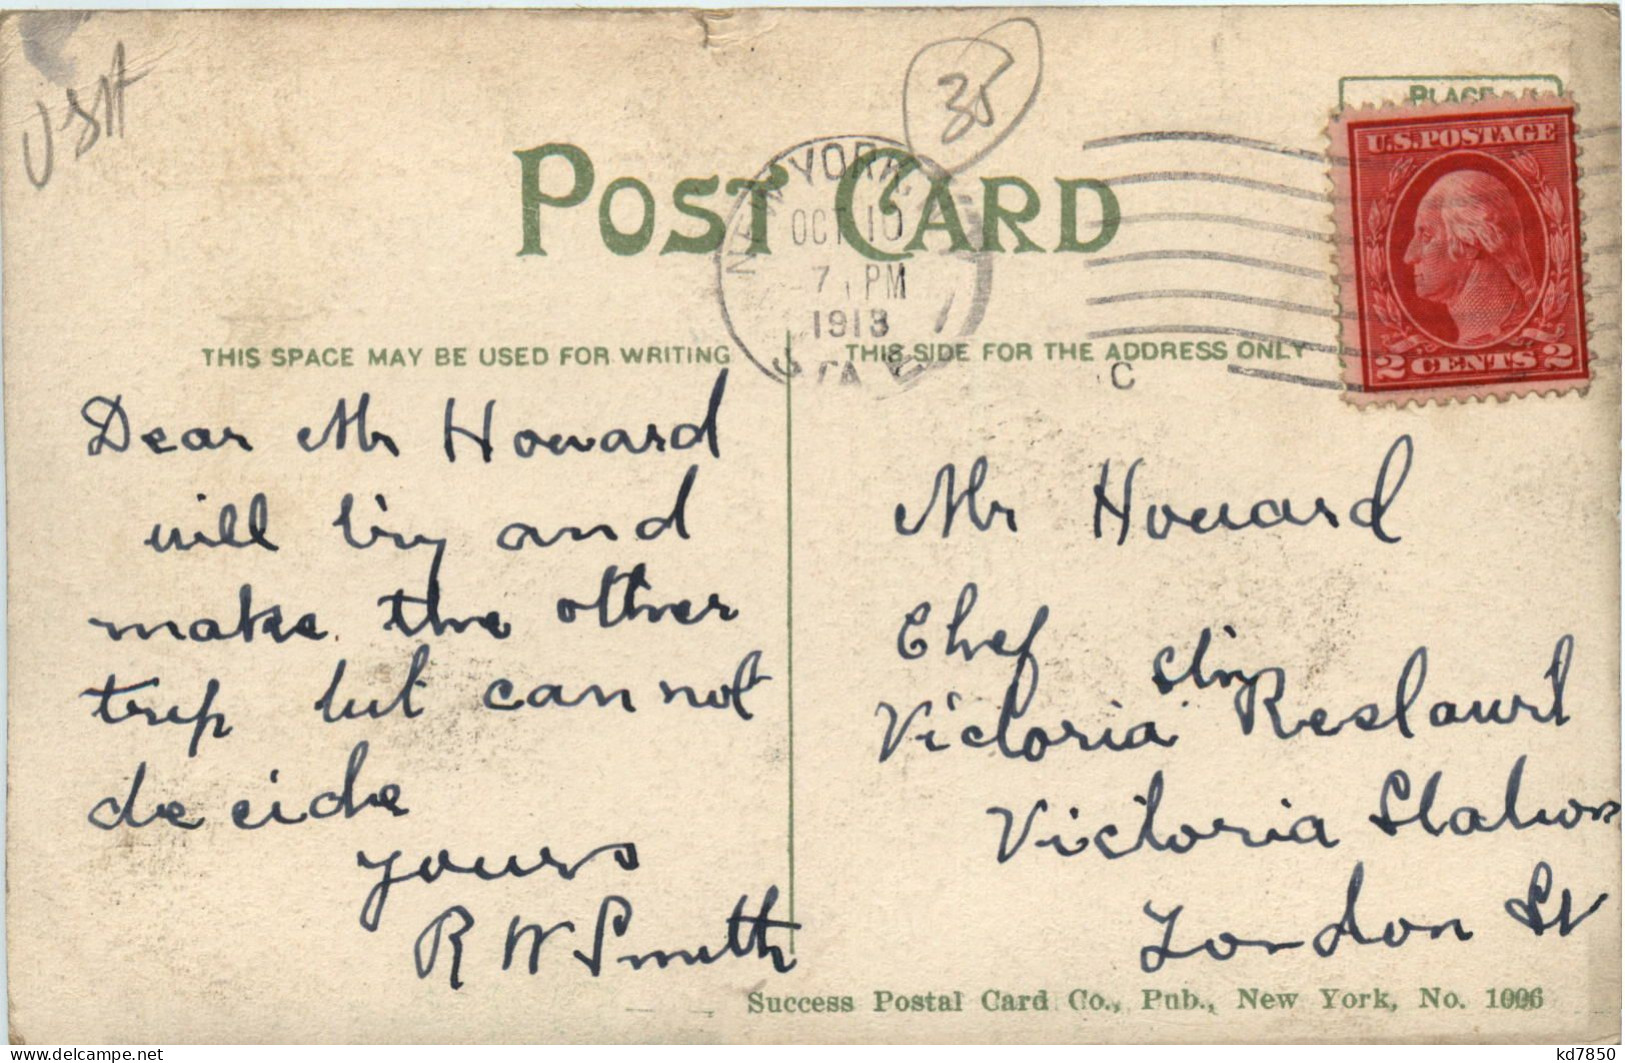 USA
35
PLACE
POST CARD
NEW YORK, N.Y.
OCT 10
7 PM
1913
STA
U.S. POSTAGE
2 CENTS 2
THIS SPACE MAY BE USED FOR WRITING
THIS SIDE FOR THE ADDRESS ONLY
C
Dear Mr Howard
will try and
make the other
trip but cannot
decide
yours
R W Smith
Mr Howard
Chef
Victoria Restaurt
Victoria Station
London
Success Postal Card Co., Pub., New York, No. 1006
kd7850
delcampe.net